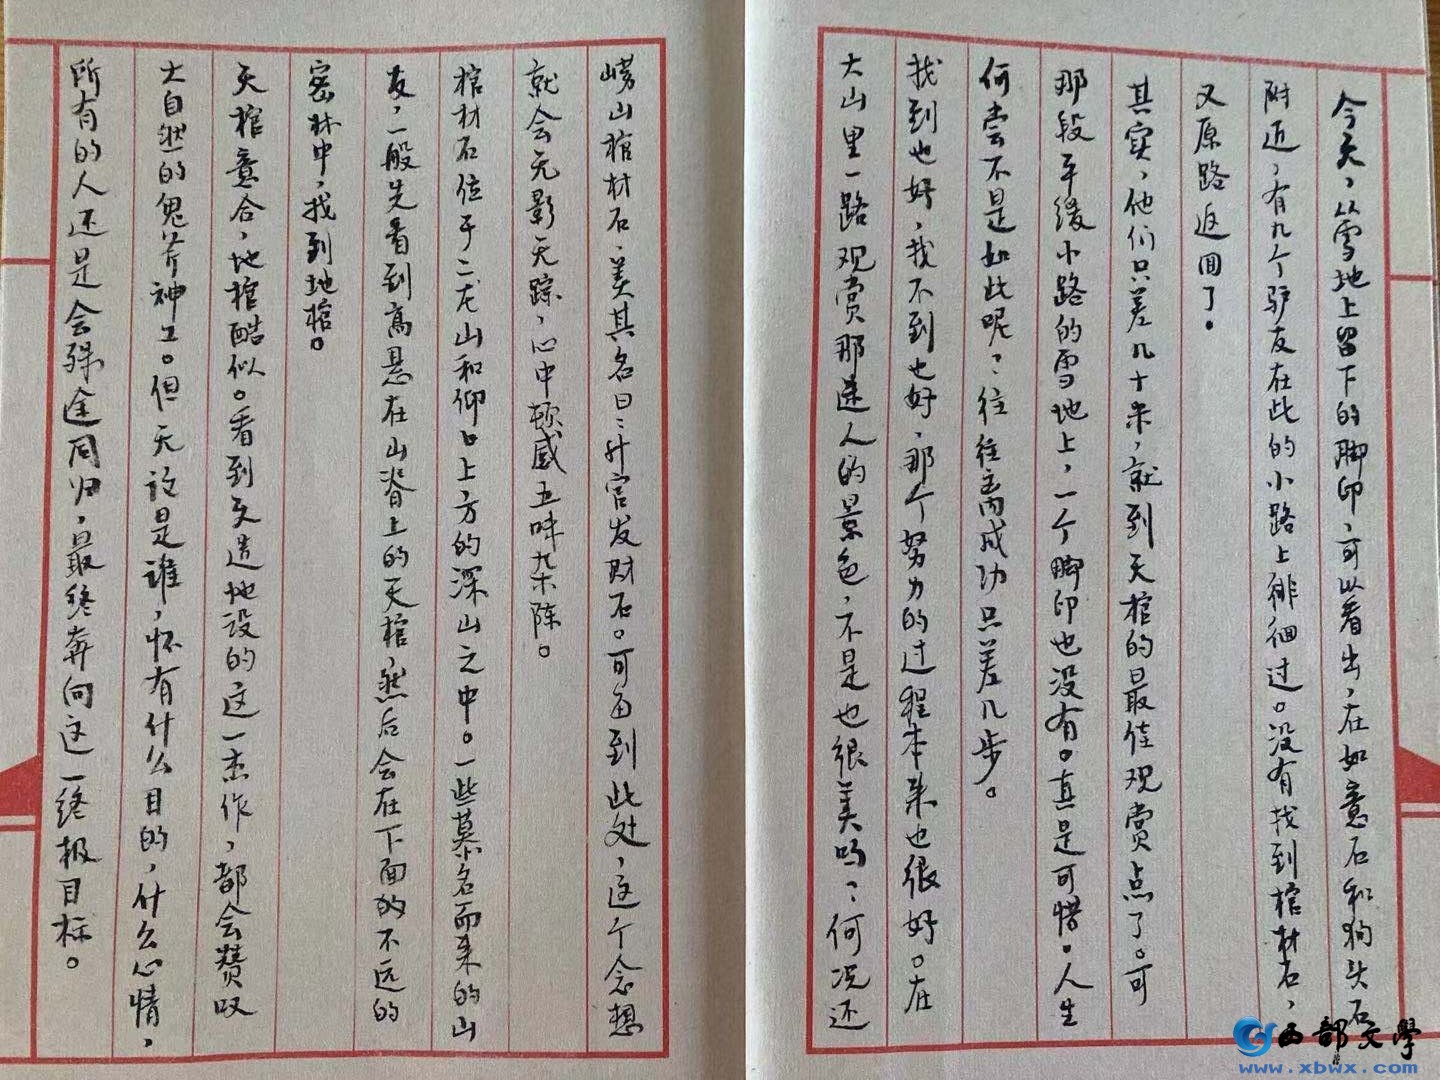 今天，从雪地上留下的脚印，可以看出，在如意石和狗头石
附近，有几个驴友在此的小路上徘徊过。没有找到棺材石，
又原路返回了。
其实，他们只差几十米，就到天棺的最佳观赏点了。可
那段平缓小路的雪地上，一个脚印也没有。真是可惜。人生
何尝不是如此呢？往往离成功只差几步。
找到也好，找不到也好，那个努力的过程本来也很好。在
大山里一路观赏那迷人的景色，不是也很美吗？何况还
崂山棺材石，美其名曰：升官发财石。可每到此处，这个念想
就会无影无踪，心中顿感五味杂陈。
棺材石位于二龙山和仰口上方的深山之中。一些慕名而来的山
友，一般先看到高悬在山脊上的天棺，然后会在下面的不远的
密林中，找到地棺。
天棺意合，地棺酷似。看到天造地设的这一杰作，都会赞叹
大自然的鬼斧神工。但无论是谁，怀有什么目的，什么心情，
所有的人还是会殊途同归，最终奔向这一终极目标。
西部文学
www.xbwx.com